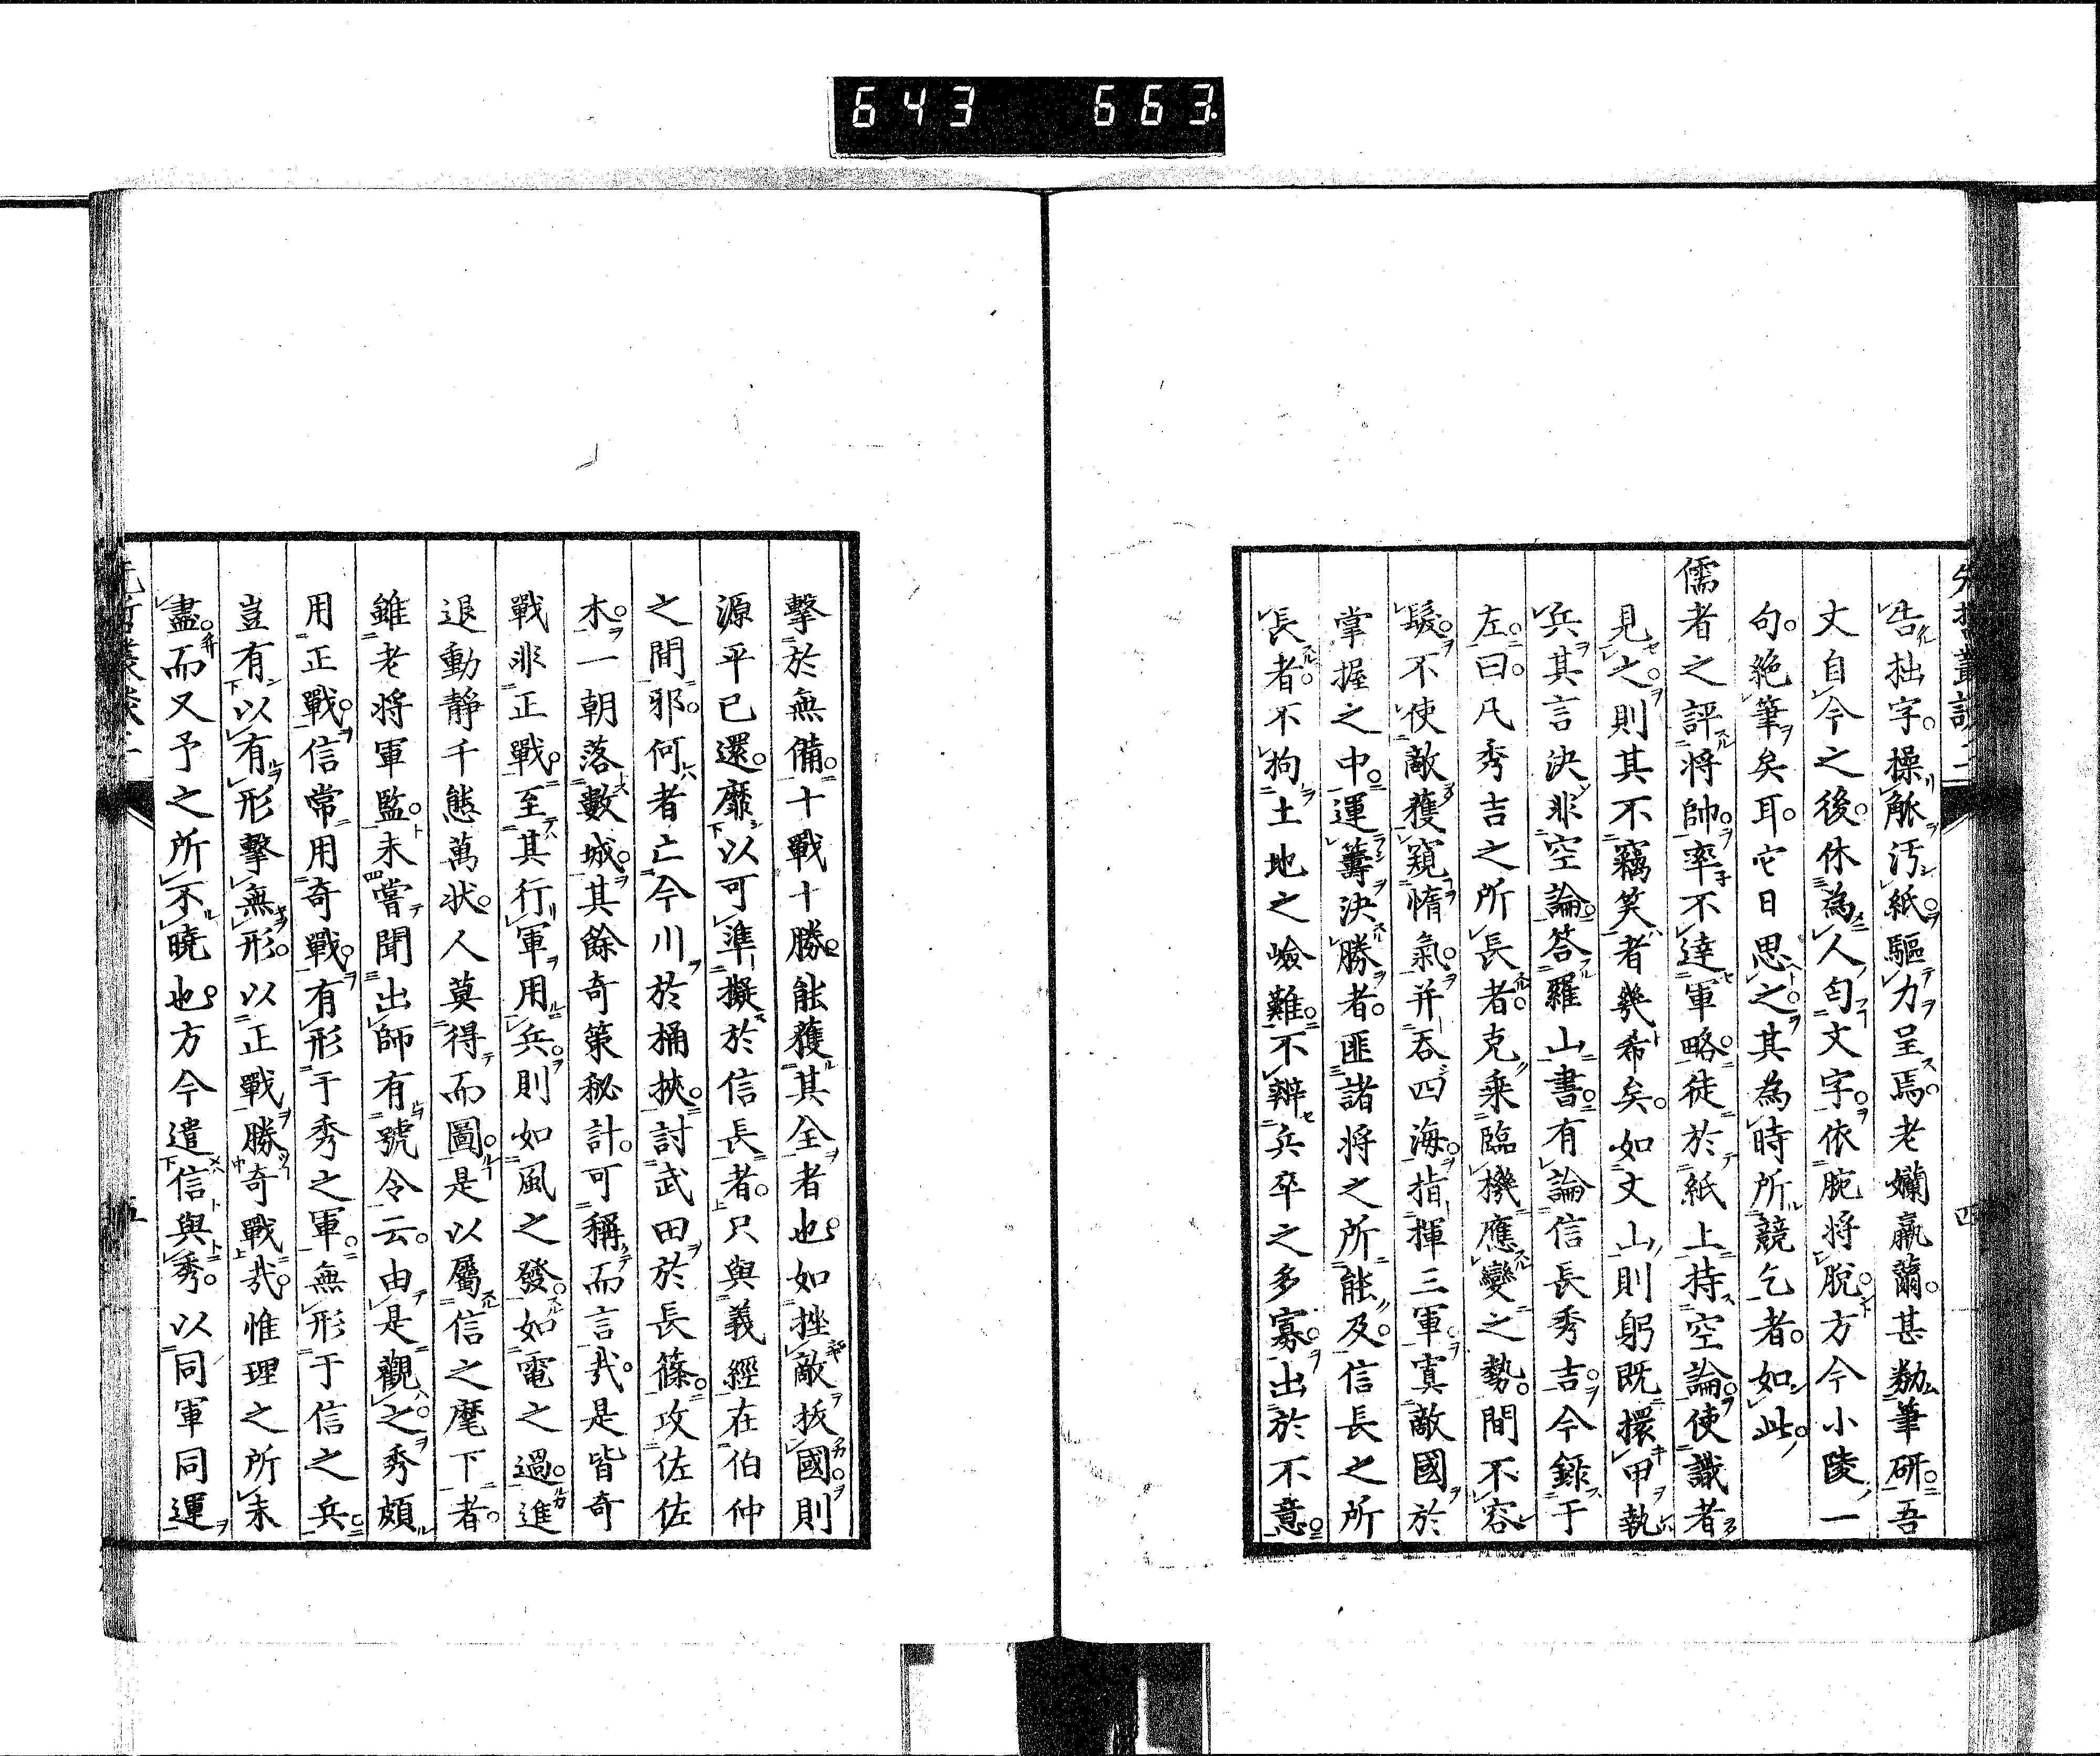 643 663.
先哲叢談二
告拙字操觚汚紙驅力呈焉老嬾羸薾甚勌筆研吾
丈自今之後休為人匄文字依腕將脫方今小陵一
句絶筆矣耳它日思之其為時所競乞者如此
儒者之評將帥率不達軍略徒於紙上持空論使識者
見之則其不竊笑者幾希矣如文山則躬既擐甲執
兵其言決非空論答羅山書有論信長秀吉今錄于
左曰凡秀吉之所長者克乗臨機應變之勢間不容
髮不使敵獲窺惰氣并呑四海指揮三軍寘敵國於
掌握之中運籌決勝者匪諸將之所能及信長之所
長者不拘土地之嶮難不辨兵卒之多寡出於不意
四
擊於無備十戰十勝能獲其全者也如挫敵拔國則
源平已還靡以可準擬於信長者只與義經在伯仲
之間邪何者亡今川於桶挾討武田於長篠攻佐佐
木一朝落數城其餘奇策秘計可稱而言哉是皆奇
戰非正戰至其行軍用兵則如風之發如電之過進
退動靜千態萬狀人莫得而圖是以屬信之麾下者
雖老將軍監未嘗聞出師有號令云由是觀之秀頗
用正戰信常用奇戰有形于秀之軍無形于信之兵
豈有以有形擊無形以正戰勝奇戰哉惟理之所未
盡而又予之所不曉也方今遣信與秀以同軍同運
五